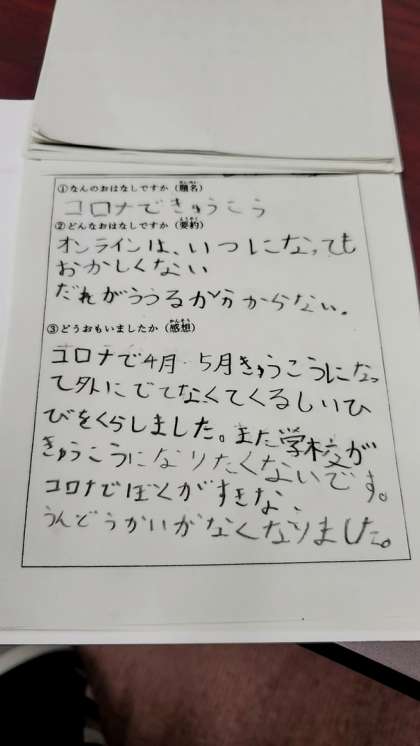 ①なんのおはなしですか（題名）
コロナできゅうこう
②どんなおはなしですか（要約）
オンラインは、いつになっても
おかしくない
だれがうつるか分からない。
③どうおもいましたか（感想）
コロナで4月、5月きゅうこうになっ
て外にでてなくてくるしいひ
びをくらしました。また学校が
きゅうこうになりたくないです。
コロナでぼくがすきな、
うんどうかいがなくなりました。